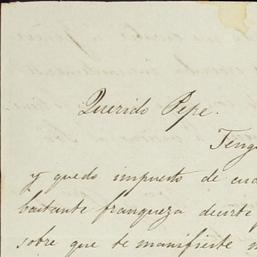 Querido Pepe.
Teng
y quedo impuesto de cua
bastante franqueza decirte
sobre que te manifieste